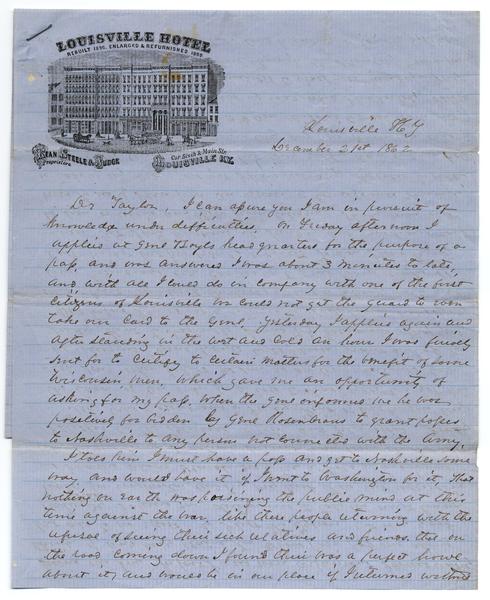 LOUISVILLE HOTEL
REBUILT 1856. ENLARGED & REFURNISHED 1860
KEAN STEELE & JUDGE
Proprietors
Cor. Sixth & Main Sts.
LOUISVILLE KY.
Louisville Ky
December 21st 1862
Dr Taylor, I can assure you I am in pursuit of
knowledge under difficulties. On Friday afternoon I
applied at Genl Boyls headquarters for the purpose of a
pass, and was answered I was about 3 minutes to late,
and with all I could do in company with one of the first
citizens of Louisville we could not get the guard to even
take our card to the Genl. Yesterday I applied again and
after standing in the wet and cold an hour I was
sent for to certify to certain matters for the benefit of some
Wisconsin men, which gave me an opportunity of
asking for my pass, when the Genl informed me he was
positively forbidden by Genl Rosenkrans to grant passes
to Nashville to any person not connected with the army.
I told him I must have a pass and get to Nashville some
way, and would have it if I went to Washington for it, that
nothing on earth was poisoning the public mind at this
time against the war, like these people returning with the
refusal of seeing their sick relatives and friends. that on
the road coming down I found there was a perfect howl
about it, and would be in our place if I returned without